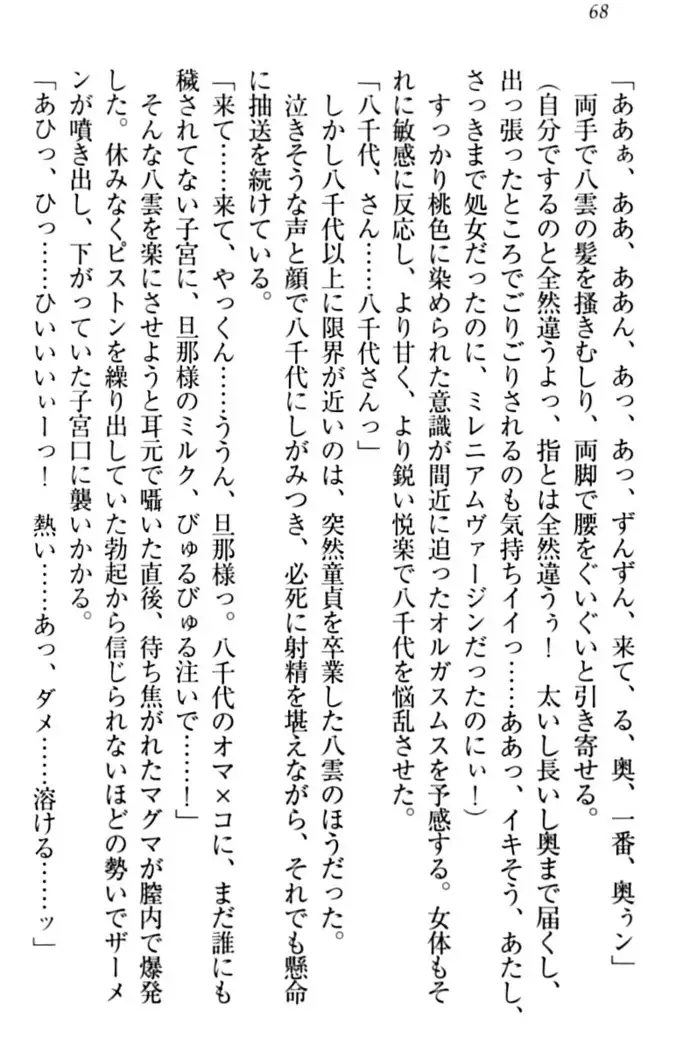 68
「ああぁ、ああ、ああん、あっ、あっ、ずんずん、来て、る、奥、一番、奥ぅン」
　両手で八雲の髪を掻きむしり、両脚で腰をぐいぐいと引き寄せる。
（自分でするのと全然違うよっ、指とは全然違うぅ！　太いし長いし奥まで届くし、
出っ張ったところでごりごりされるのも気持ちイイっ……ああっ、イキそう、あたし、
さっきまで処女だったのに、ミレニアムヴァージンだったのにぃ！）
　すっかり桃色に染められた意識が間近に迫ったオルガスムスを予感する。女体もそ
れに敏感に反応し、より甘く、より鋭い悦楽で八千代を悩乱させた。
「八千代、さん……八千代さんっ」
　しかし八千代以上に限界が近いのは、突然童貞を卒業した八雲のほうだった。
　泣きそうな声と顔で八千代にしがみつき、必死に射精を堪えながら、それでも懸命
に抽送を続けている。
「来て……来て、やっくん……ううん、旦那様っ。八千代のオマ×コに、まだ誰にも
穢されてない子宮に、旦那様のミルク、びゅるびゅる注いで……！」
　そんな八雲を楽にさせようと耳元で囁いた直後、待ち焦がれたマグマが膣内で爆発
した。休みなくピストンを繰り出していた勃起から信じられないほどの勢いでザーメ
ンが噴き出し、下がっていた子宮口に襲いかかる。
「あひっ、ひっ……ひいいいぃーっ！　熱い……あっ、ダメ……溶ける……ッ」